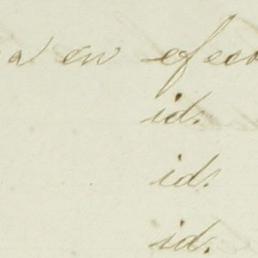 a en efec
id.
id.
id.